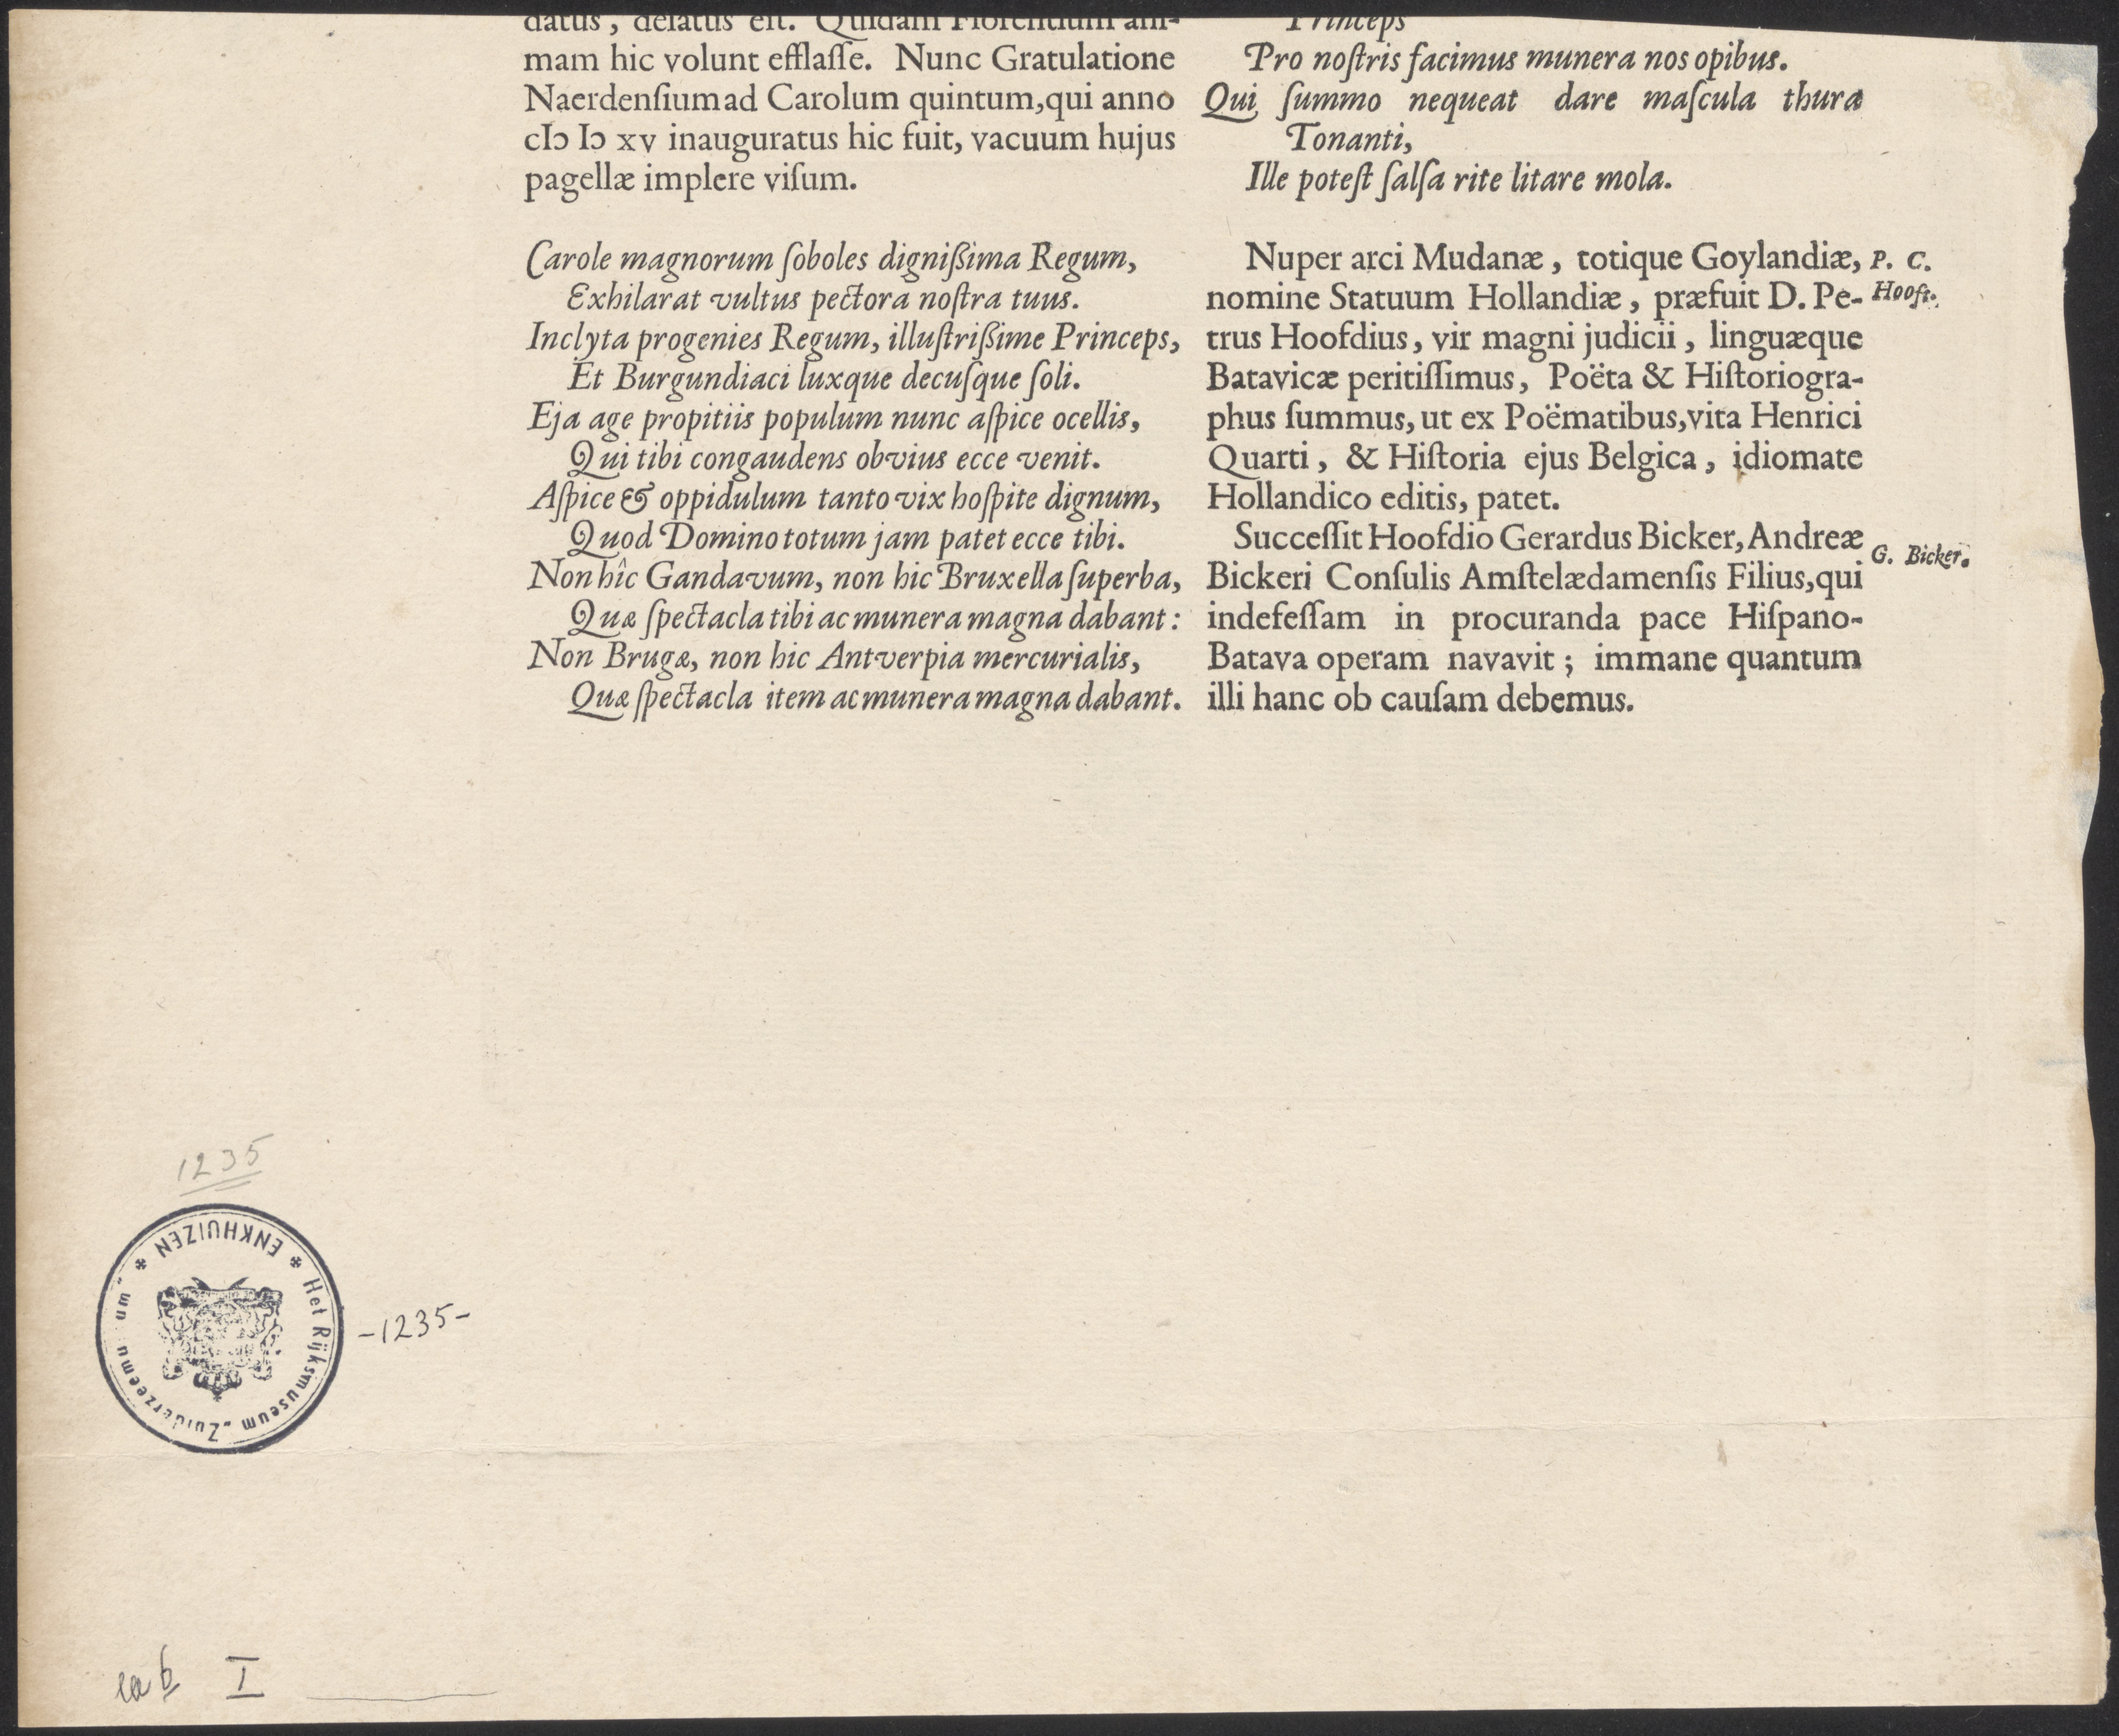 datus, delatus est. Quidam Florentium ani-
mam hic volunt efflaſſe. Nunc Gratulatione
Naerdenſium ad Carolum quintum, qui anno
cIɔ Iɔ xv inauguratus hic fuit, vacuum hujus
pagellæ implere viſum.
Carole magnorum ſoboles digniſſima Regum,
Exhilarat vultus pectora noſtra tuus.
Inclyta progenies Regum, illuſtriſſime Princeps,
Et Burgundiaci luxque decuſque ſoli.
Eja age propitiis populum nunc aſpice ocellis,
Qui tibi congaudens obvius ecce venit.
Aſpice & oppidulum tanto vix hoſpite dignum,
Quod Domino totum jam patet ecce tibi.
Non hîc Gandavum, non hic Bruxella ſuperba,
Quæ ſpectacla tibi ac munera magna dabant:
Non Brugæ, non hic Antverpia mercurialis,
Quæ ſpectacla item ac munera magna dabant.
Princeps
Pro noſtris facimus munera nos opibus.
Qui ſummo nequeat dare maſcula thura
Tonanti,
Ille poteſt ſalſa rite litare mola.
Nuper arci Mudanæ, totique Goylandiæ,
nomine Statuum Hollandiæ, præfuit D. Pe-
trus Hoofdius, vir magni judicii, linguæque
Batavicæ peritiſſimus, Poëta & Hiſtoriogra-
phus ſummus, ut ex Poëmatibus, vita Henrici
Quarti, & Hiſtoria ejus Belgica, idiomate
Hollandico editis, patet.
Succeſſit Hoofdio Gerardus Bicker, Andreæ
Bickeri Conſulis Amſtelædamenſis Filius, qui
indefeſſam in procuranda pace Hiſpano-
Batava operam navavit; immane quantum
illi hanc ob cauſam debemus.
P. C.
Hooft.
G. Bicker.
1235
Het Rijksmuseum „Zuiderzeemu um"
ENKHUIZEN
-1235-
I